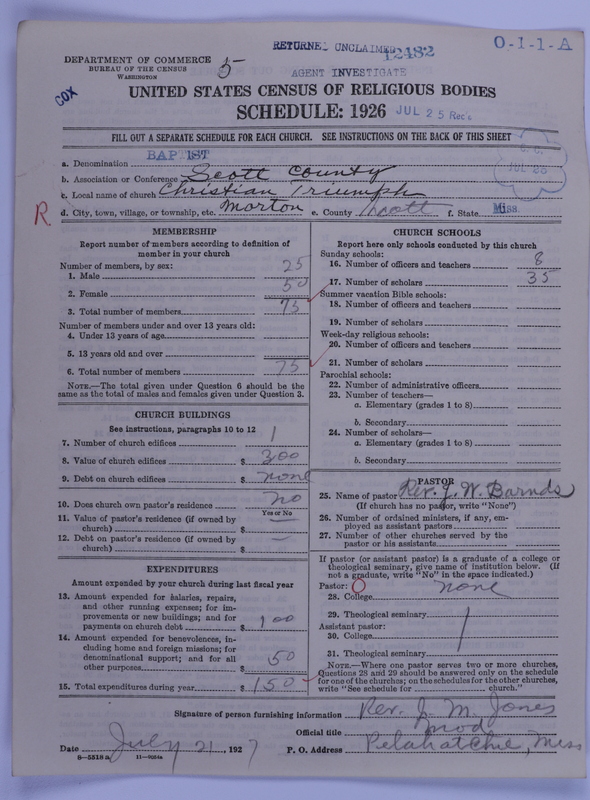 RETURNED UNCLAIMED
12482
O-I-1-A
DEPARTMENT OF COMMERCE
BUREAU OF THE CENSUS
WASHINGTON
5
AGENT INVESTIGATE
COX
UNITED STATES CENSUS OF RELIGIOUS BODIES
SCHEDULE: 1926
JUL 25 Rec'd
FILL OUT A SEPARATE SCHEDULE FOR EACH CHURCH. SEE INSTRUCTIONS ON THE BACK OF THIS SHEET
a. Denomination BAPTIST
b. Association or Conference Scott County
c. Local name of church Christian Triumph
R
d. City, town, village, or township, etc. Morton e. County Scott f. State Miss.
MEMBERSHIP
Report number of members according to definition of
member in your church
Number of members, by sex:
1. Male 25
2. Female 50
3. Total number of members 75
Number of members under and over 13 years old:
4. Under 13 years of age
5. 13 years old and over
6. Total number of members 75
NOTE.—The total given under Question 6 should be the
same as the total of males and females given under Question 3.
CHURCH BUILDINGS
See instructions, paragraphs 10 to 12
7. Number of church edifices 1
8. Value of church edifices $ 300
9. Debt on church edifices $ none
10. Does church own pastor's residence no
Yes or No
11. Value of pastor's residence (if owned by
church) $ —
12. Debt on pastor's residence (if owned by
church) $ —
EXPENDITURES
Amount expended by your church during last fiscal year
13. Amount expended for salaries, repairs,
and other running expenses; for im-
provements or new buildings; and for
payments on church debt $ 100
14. Amount expended for benevolences, in-
cluding home and foreign missions; for
denominational support; and for all
other purposes $ 50
15. Total expenditures during year $ 150
CHURCH SCHOOLS
Report here only schools conducted by this church
Sunday schools:
16. Number of officers and teachers 8
17. Number of scholars 35
Summer vacation Bible schools:
18. Number of officers and teachers
19. Number of scholars
Week-day religious schools:
20. Number of officers and teachers
21. Number of scholars
Parochial schools:
22. Number of administrative officers
23. Number of teachers—
a. Elementary (grades 1 to 8)
b. Secondary
24. Number of scholars—
a. Elementary (grades 1 to 8)
b. Secondary
PASTOR
25. Name of pastor Rev. J. W. Barnds
(If church has no pastor, write "None")
26. Number of ordained ministers, if any, em-
ployed as assistant pastors
27. Number of other churches served by the
pastor or his assistants
If pastor (or assistant pastor) is a graduate of a college or
theological seminary, give name of institution below. (If
not a graduate, write "No" in the space indicated.)
Pastor: O
28. College none
29. Theological seminary
Assistant pastor:
30. College
31. Theological seminary
NOTE.—Where one pastor serves two or more churches,
Questions 28 and 29 should be answered only on the schedule
for one of the churches; on the schedules for the other churches,
write "See schedule for church."
Signature of person furnishing information Rev. J. M. Jones
Official title Mod
Date July 21, 1927
P. O. Address Pelahatchie, Miss
8—5313 a